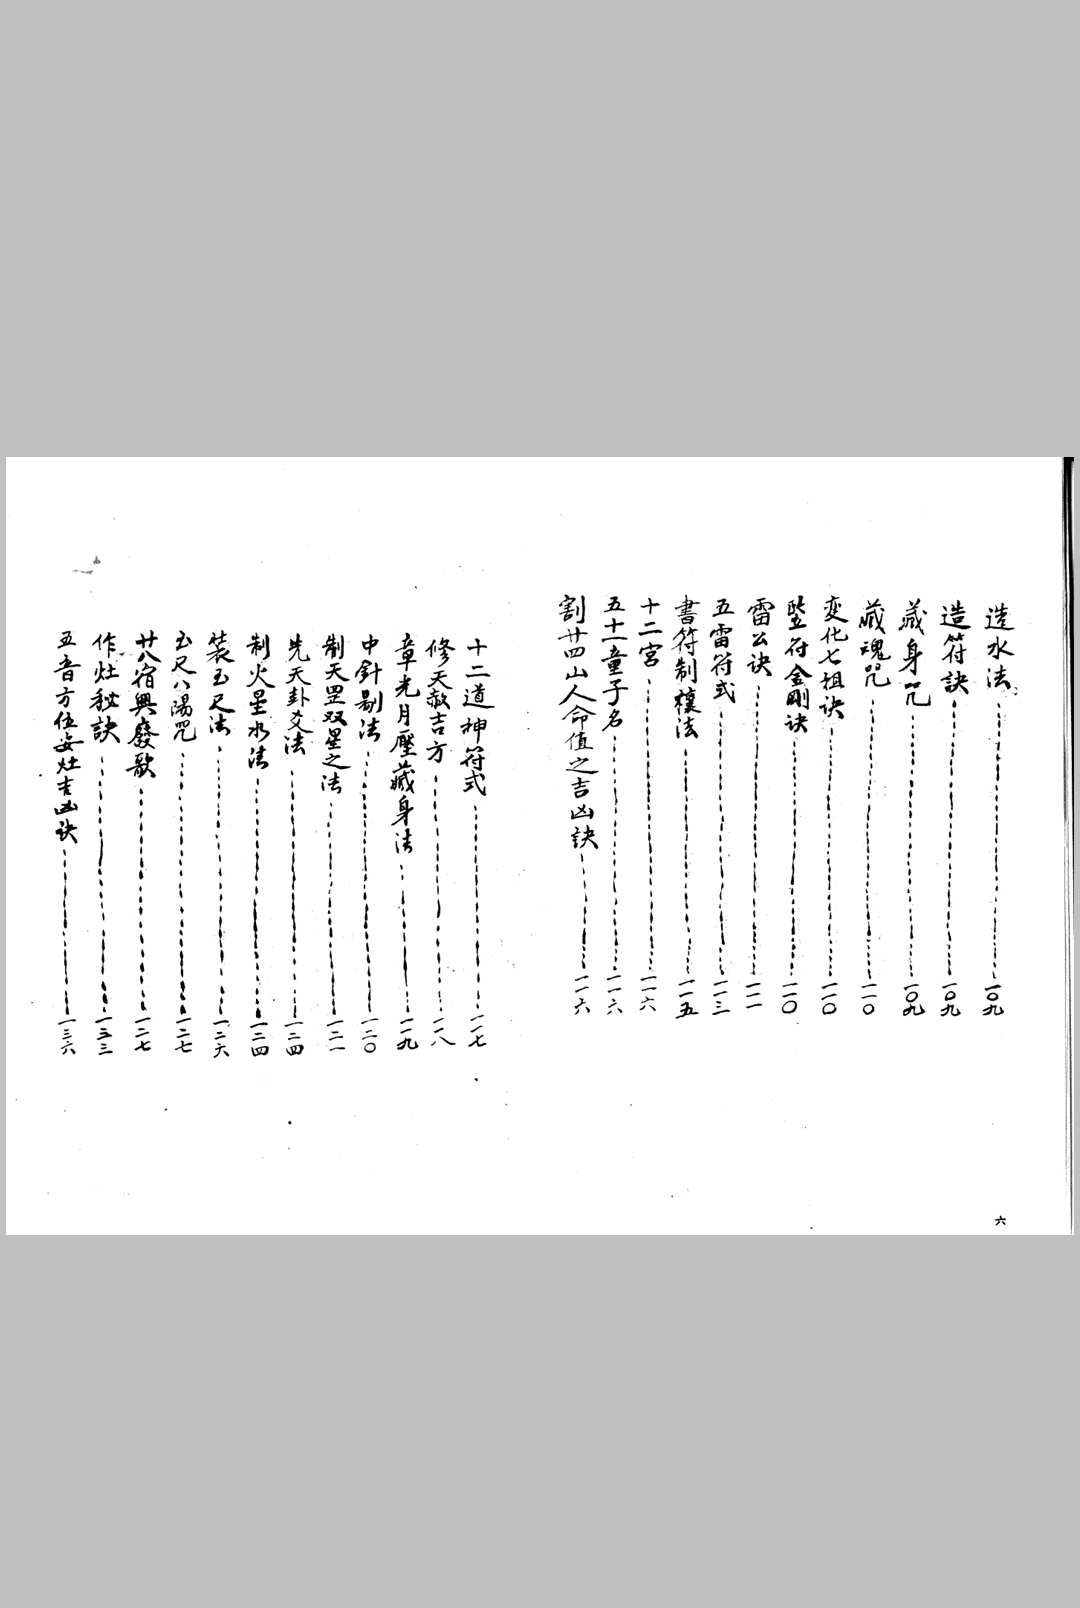 造水法 一〇九
造符訣 一〇九
藏身咒 一〇九
藏魂咒 一一〇
変化七祖訣 一一〇
竪符金剛訣 一一〇
雷公訣 一一一
五雷符式 一一三
書符制禳法 一一五
十二宮 一一六
五十一童子名 一一六
割廿四山人命值之吉凶訣 一一六
十二道神符式 一一七
修天赦吉方 一一八
章光月壓藏身法 一一九
中針剔法 一二〇
制天罡双星之法 一二一
先天卦爻法 一二四
制火星水法 一二四
裝玉尺法 一二六
玉尺八陽咒 一二七
廿八宿興廢歌 一二七
作灶秘訣 一三三
五音方位安灶吉凶訣 一三六
六